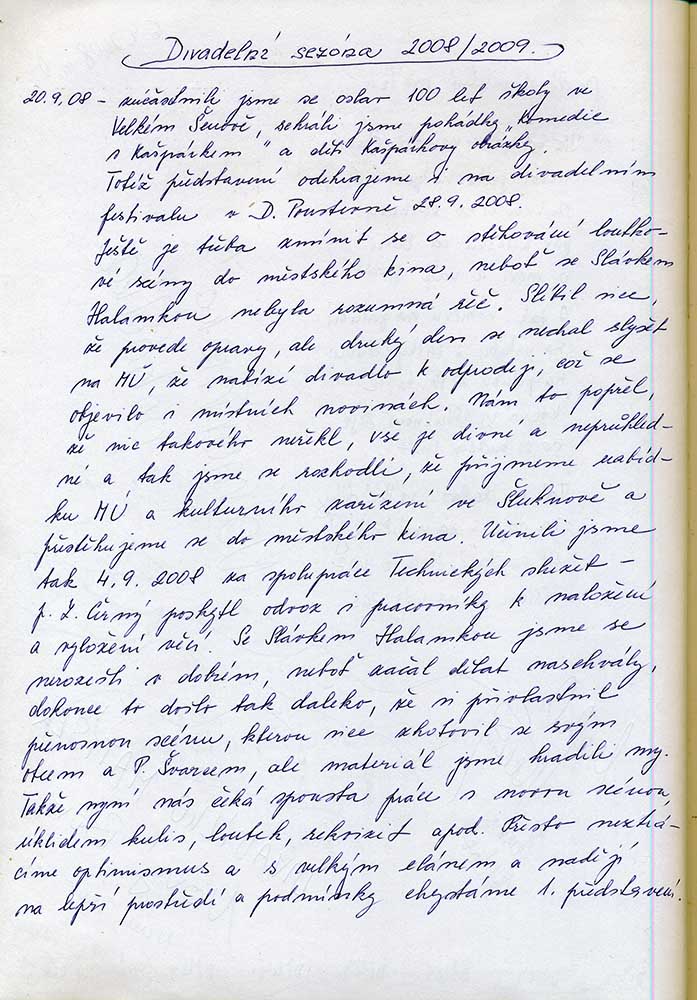 Divadelní sezóna 2008/2009.
20.9.08 - zúčastnili jsme se oslav 100 let školy ve
Velkém Šenově, sehráli jsme pohádky „Komedie
s Kašpárkem" a děti Kašpárkovy obrázky.
Totéž představení odehrajeme i na divadelním
festivalu v D. Poustevně 28.9.2008.
Ještě je třeba zmínit se o stěhování loutko-
vé scény do městského kina, neboť se Slávkem
Halamkou nebyla rozumná řeč. Slíbil sice,
že provede opravy, ale druhý den se nechal slyšet
na MÚ, že nabízí divadlo k odprodeji, což se
objevilo i místních novinách. Nám to popřel,
že nic takového neřekl, vše je divné a neprůhled-
né a tak jsme se rozhodli, že přijmeme nabíd-
ku MÚ a kulturního zařízení ve Šluknově a
přestěhujeme se do městského kina. Učinili jsme
tak 4.9.2008 za spolupráce Technických služeb -
p. Z. Černý poskytl odvoz i pracovníky k naložení
a vyložení věcí. Se Slávkem Halamkou jsme se
nerozešli v dobrém, neboť začal dělat naschvály,
dokonce to došlo tak daleko, že si přivlastnil
přenosnou scénu, kterou sice zhotovil se svým
otcem a P. Švarcem, ale materiál jsme hradili my.
Takže nyní nás čeká spousta práce s novou scénou,
úklidem kulis, loutek, rekvizit apod. Přesto neztrá-
címe optimismus a s velkým elánem a nadějí
na lepší prostředí a podmínky chystáme 1. představení.